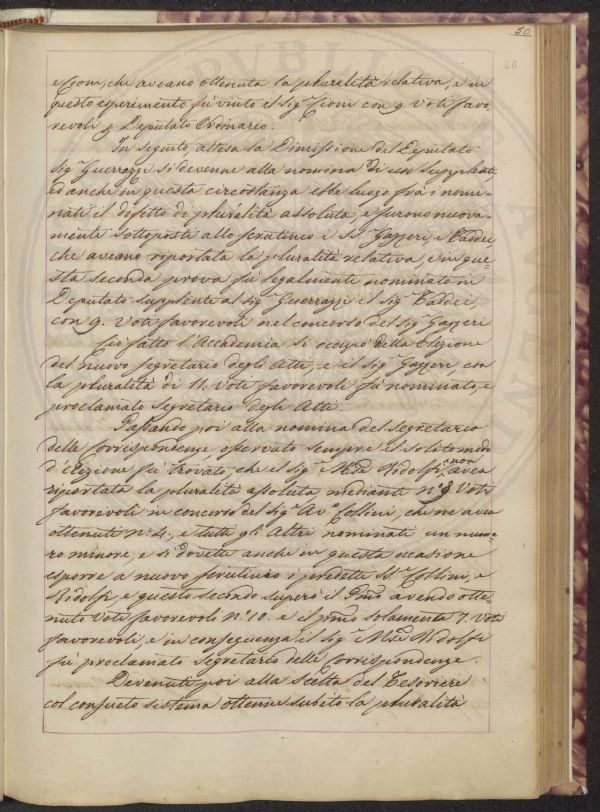 50
26
e Cioni, che aveano ottenuta la pluralità relativa, e in
questo esperimento fù vinto il Sig.r Cioni con 9. Voti favo,
revoli p Deputato Ordinario.
In seguito, attesa la Dimissione del Deputato
Sig.r Guerrazzi si devenne alla nomina di un Supplente
ed anche in questa circostanza ebbe luogo fra i nomi-
nati il difetto di pluralità assoluta, e furono nuova-
mente sottoposti allo scrutinio i SS.i Gazzeri, e Taddei
che aveano riportata la pluralità relativa, e in que=
sta seconda prova fù legalmente nominato in
Deputato Supplente al Sig.r Guerrazzi il Sig.r Taddei,
con 9. Voti favorevoli nel concorso del Sig.r Gazzeri
Ciò fatto l'Accademia si occupò della Elezione
del nuovo Segretario degli Atti, e il Sig.r Gazzeri, con
la pluralità di 11. Voti favorevoli fù nominato, e
proclamato Segretario degli Atti.
Passando poi alla nomina del Segretario
delle Corrispondenze osservato sempre il solito modo
d'elezione fù trovato, che il Sig.r M.se Ridolfi non avea
riportata la pluralità assoluta, mediante n.o 8 Voti
favorevoli in concorso del Sig.r Av.o Collini, che ne avea
ottenuti n.o 4., e tutti gli Altri nominati un nume-
ro minore, e si dovette anche in questa occasione
esporre a nuovo scrutinio i predetti SS.i Collini, e
Ridolfi e questo secondo superò il P.mo avendo otte-
nuto Voti favorevoli N.o 10. e il p.mo solamente 7. Voti
favorevoli, e in conseguenza il Sig.r M.se Ridolfi
fù proclamato Segretario delle Corrispondenze.
Devenuti poi alla scelta del Tesoriere
col consueto sistema ottenne subito la pluralità